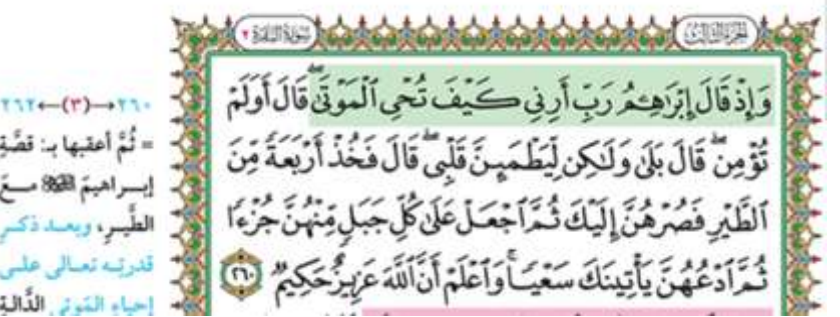 الجزء الثالث
سورة البقرة ٢
وَإِذْ قَالَ إِبْرَاهِـۧمُ رَبِّ أَرِنِى كَيْفَ تُحْىِ ٱلْمَوْتَىٰ ۖ قَالَ أَوَلَمْ
تُؤْمِن ۖ قَالَ بَلَىٰ وَلَـٰكِن لِّيَطْمَئِنَّ قَلْبِى ۖ قَالَ فَخُذْ أَرْبَعَةً مِّنَ
ٱلطَّيْرِ فَصُرْهُنَّ إِلَيْكَ ثُمَّ ٱجْعَلْ عَلَىٰ كُلِّ جَبَلٍ مِّنْهُنَّ جُزْءًا
ثُمَّ ٱدْعُهُنَّ يَأْتِينَكَ سَعْيًا ۚ وَٱعْلَمْ أَنَّ ٱللَّهَ عَزِيزٌ حَكِيمٌ ٢٦٠
٢٦٠→(٣)←٢٦٢
= ثُمَّ أعقبها بـ: قصَّةِ
إبـراهيمَ مـعَ
الطَّيـرِ، وبعـد ذكـرِ
قدرتِـه تعـالى علـى
إحياءِ المَوتى الدَّالـةِ